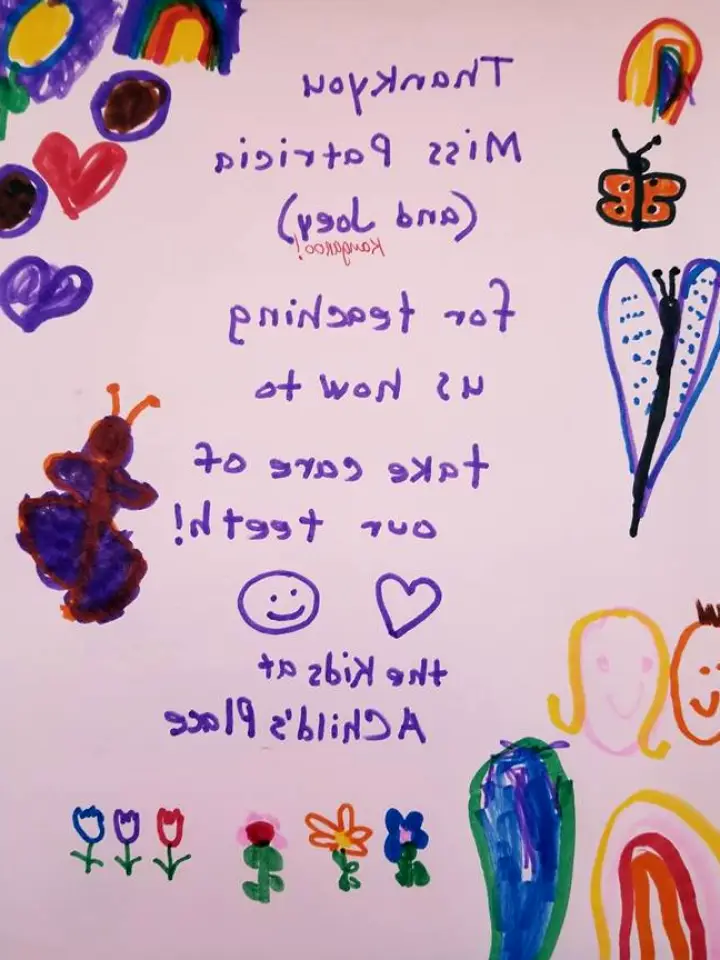 Thankyou
Miss Patricia
(and Joey)
Kangaroo!
for teaching
us how to
take care of
our teeth!
the Kids at
A Child's Place